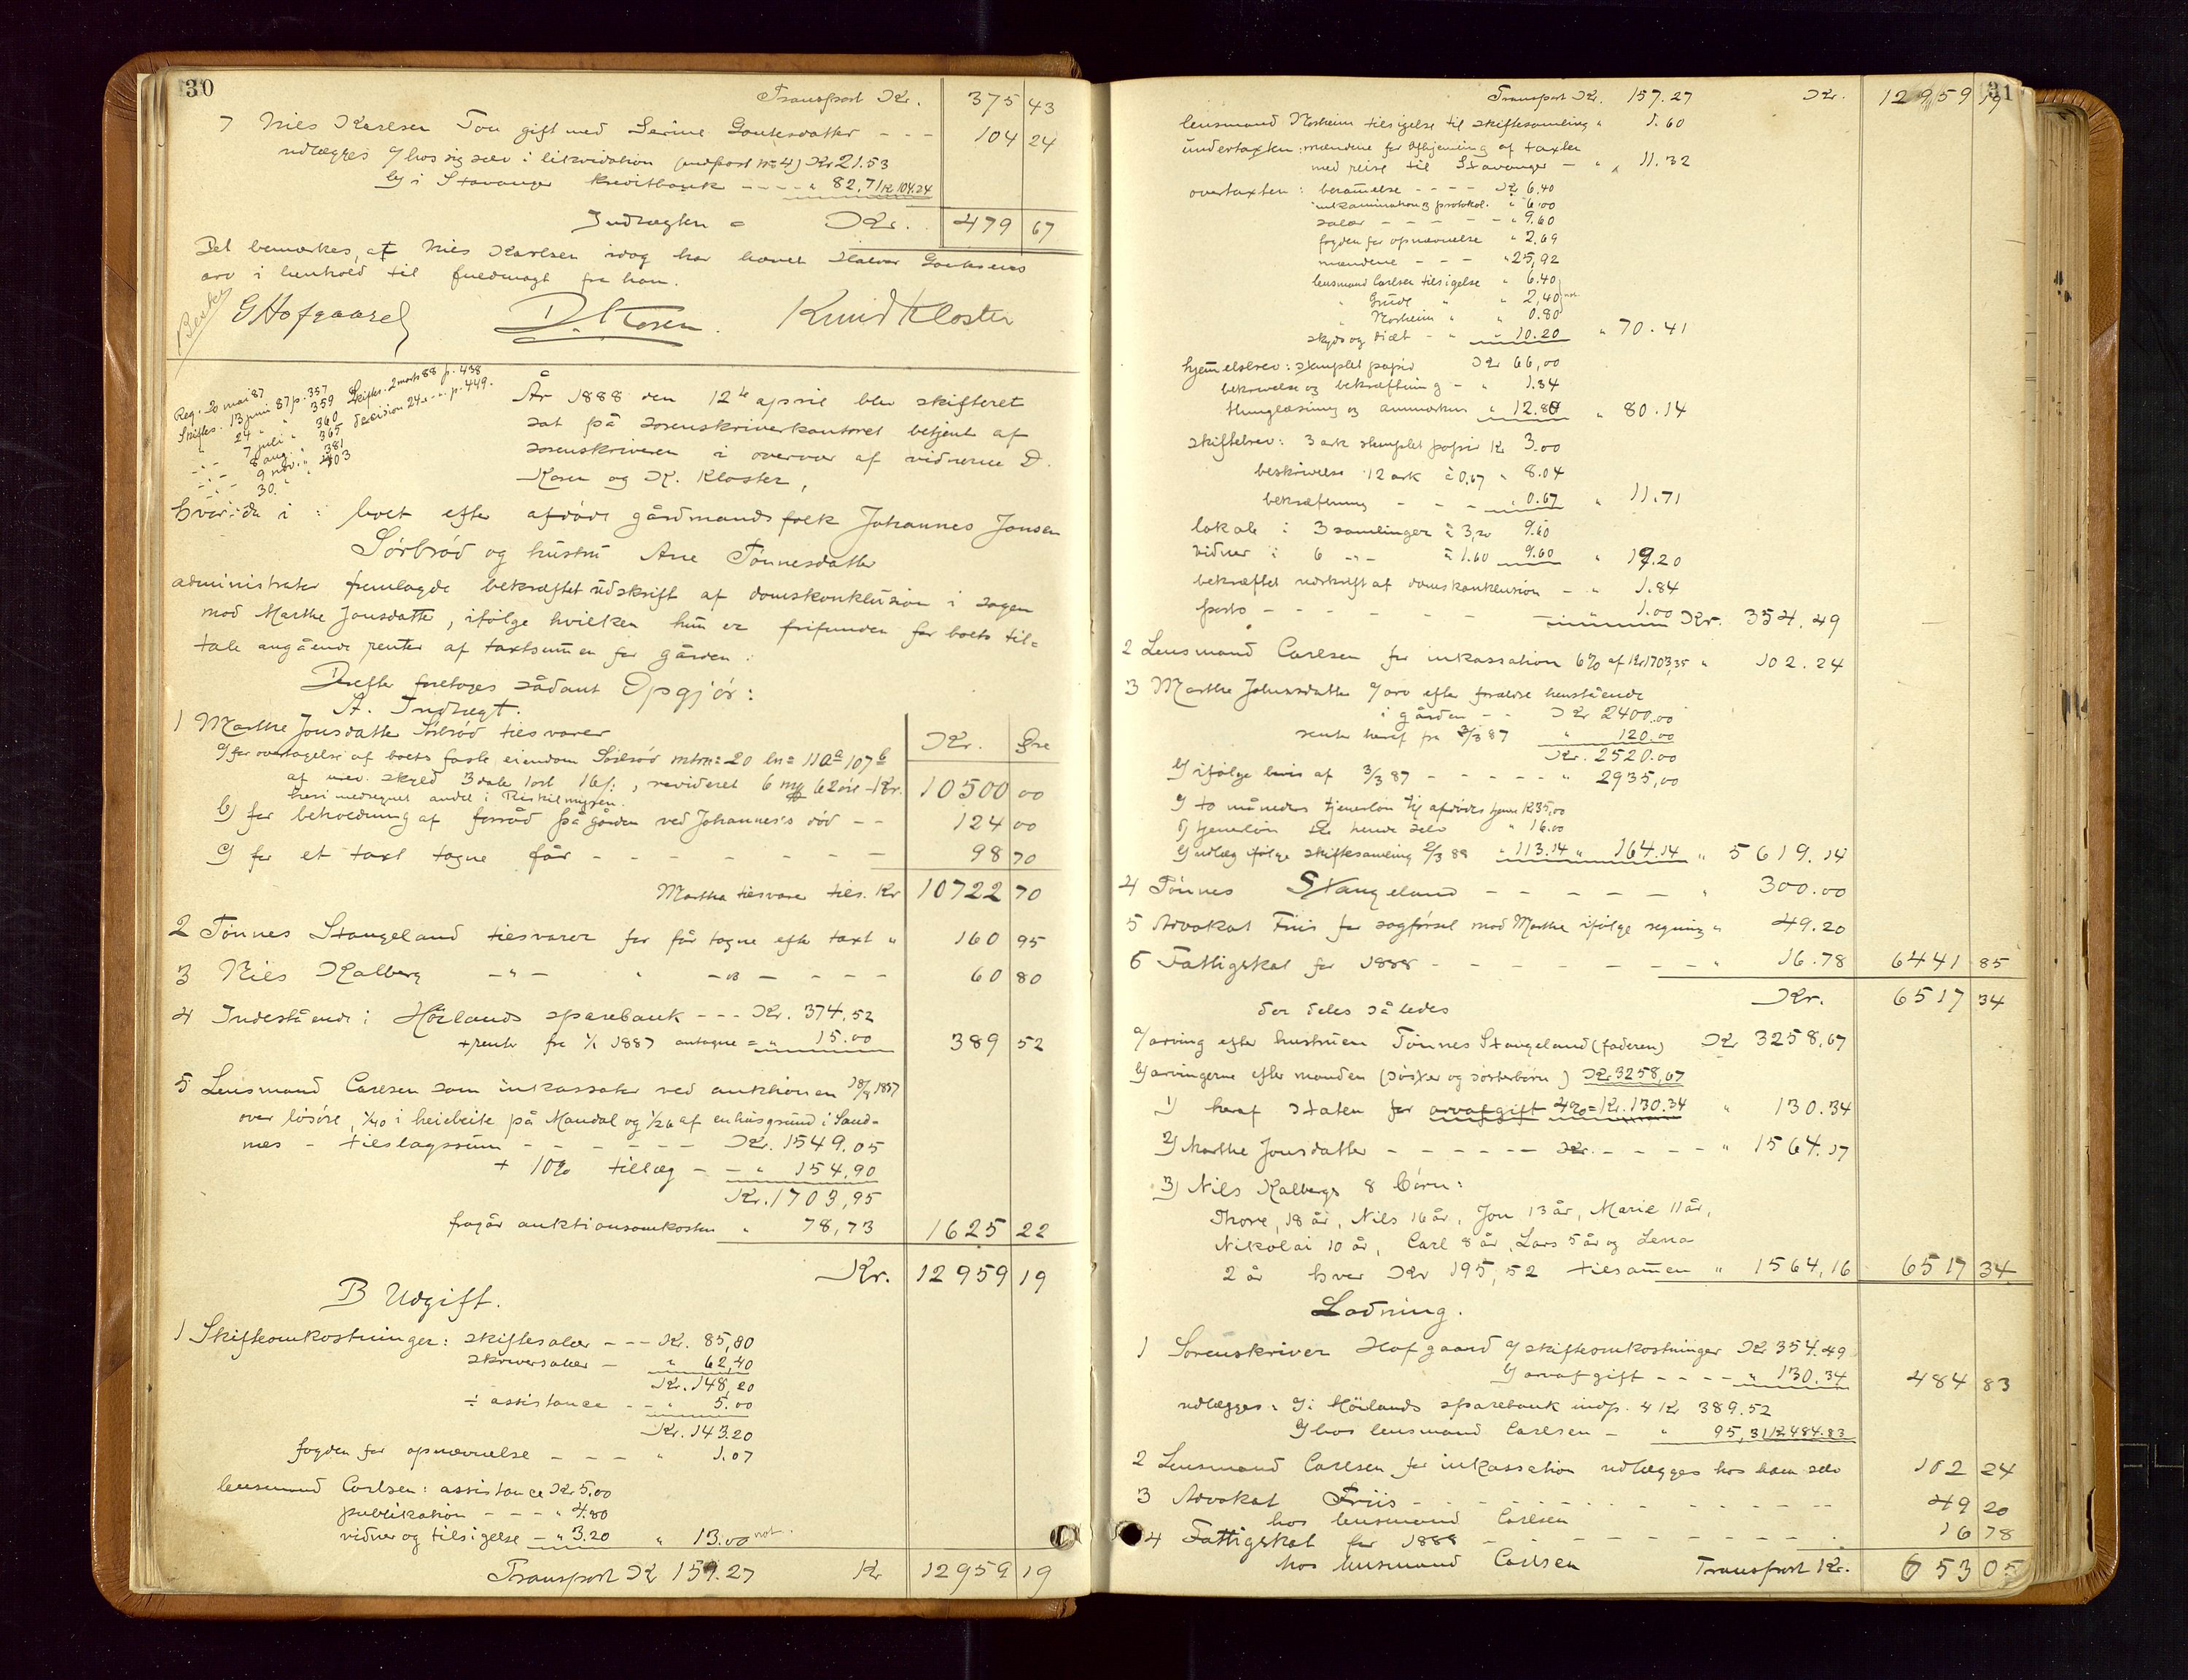 30
Transport Kr. 375 43
7 Niels Karlsen Tou gift med Serine Gautesdatter - - - 104 24
udlægges a/ hos sig selv i likvidation (indpost nr 4) Kr 21.53
b/ i Stavanger kreditbank - - - - " 82,71 Kr 104.24
Indtægten = Kr. 479 67
Det bemærkes, at Niels Karlsen idag har hævet Halvor Gautesens
arv i henhold til fuldmagt fra ham.
G Hofgaard D. Kosen. Knud Kloster
Reg. 20 mai 87
Skiftes. 13 juni 87 p. 357 Skiftes. 2 marts 88 p. 438
24 " " 359 decision 24 - " - p. 449.
" 7 juli " 360
-"- 8 aug. " 365
-"- 9 nov. " 381
-"- 30. " " 403
År 1888 den 12te april blev skifteret
sat på sorenskriverkontoret betjent af
sorenskriveren i overvær af vidnerne D.
Kosen og K. Kloster,
hvor da i: boet efter afdøde gårdmandsfolk Johannes Jonsen
Sörbröd og hustru Ane Tönnesdatter
administrator fremlagde bekræftet udskrift af domskonklusion i sagen
mod Marthe Jonsdatter, ifølge hvilken hun er frifunden for boets til=
tale angående renter af taxtsummen for gården.
Derefter foretoges sådant Opgjör:
A. Indtægt.
1 Marthe Jonsdatter Sörbröd tilsvarer Kr. Øre
a/ for overtagelse af boets faste eiendom Sörbröd mtrn= 20 ln= 110a 107b
af urev. skyld 3 daler 1 ort 16 s:, revideret 6 my 62 öre - Kr. 10500 00
heri medregnet andel i
b/ for beholdning af forråd på gården ved Johannes's död - - 124 00
c/ for et taxt tagne får - - - - - - - 98 70
Martha tilsvarer tils. Kr 10722 70
2 Tönnes Stangeland tilsvarer for får tagne efter taxt " 160 95
3 Niels Kalberg - " - " - " - - - - 60 80
4 Indestående i Höilands sparebank - - - Kr. 374,52
+ renter fra 1/1 1887 antagne = " 15.00 389 52
5 Lensmand Carlsen som inkassator ved auktionen 18/7 1887
over lösöre, 1/40 i heiebeite på Mandal og 1/26 af en husgrund i Sand=
næs - tilslagssum - - - - - - Kr. 1549.05
+ 10% tillæg - - " 154,90
Kr. 1703,95
fragår auktionsomkosten " 78,73 1625 22
Kr. 12959 19
B Udgift.
1 Skifteomkostninger: skiftesalær - - - Kr. 85,80
skriversalær - " 62,40
Kr. 148,20
÷ assistance - - " 5.00
Kr. 143.20
fogden for opnævnelse - - - " 1.07
lensmand Carlsen: assistance Kr 5.00
publikation - - - " 4.80
vidner og tilsigelse - " 3.20 " 13.00 not.
Transport Kr 157.27 Kr 12959 19
31
Transport Kr. 157.27 Kr. 12959 19
lensmand Norheim tilsigelse til skiftesamling " 1.60
undertaxten: mændene for afhjemling af taxten
med reise til Stavanger - " 11.32
overtaxten: berammelse - - - - Kr 6.40
inkamination og protokol. " 6.00
salær - - - - - - " 9.60
fogden for opnævnelse " 2,69
mændene - - - " 25,92
lensmand Carlsen tilsigelse " 6.40
" Gude " " 2,40 not.
" Norheim " " 0.80
skyds og diæt - - " 10.20 " 70.41
hjemmelsbrev: stemplet papir Kr 66,00
beskrivelse og bekræftning - " 1.34
thinglæsning og anmærkn " 12.80 " 80.14
skiftebrev: 3 ark stemplet papir Kr 3.00
beskrivelse 12 ark à 0,67 " 8.04
bekræftning - - - " 0.67 " 11.71
lokale: 3 samlinger à 3,20 9.60
vidner: 6 -"- à 1.60 9.60 " 19.20
bekræftet udskrift af domskonklusion - " 1.84
porto - - - - - 1.00 Kr. 354.49
2 Lensmand Carlsen for inkassation 6% af Kr 1703,95 " 102.24
3 Marthe Johnsdatter a/ arv efter forældre henstående
i gården - - Kr 2400.00
renter heraf fra 3/3 87 " 120.00
Kr. 2520.00
b/ ifølge bevis af 3/3 87 - - - - - " 2935,00
c/ to måneders tjenerlön til afdödes tjener Kr 35,00
d/ tjenerlön til hende selv " 16.00
e/ udlæg ifølge skiftesamling 2/3 88 " 113.14 " 164.14 " 5619.14
4 Tönnes Stangeland - - - - - - " 300.00
5 Advokat Friis for sagførsel mod Marthe ifølge regning " 49.20
6 Fattigskat for 1888 - - - - - - - " 16.78 6441 85
Kr. 6517 34
der deles således
a/ arving efter hustruen Tönnes Stangeland (faderen) Kr 3258,67
b/ arvingerne efter manden (söster og sösterbörn) Kr 3258,67
1) heraf Staten for arvafgift 4% = Kr. 130.34 " 130.34
2) Marthe Jonsdatter - - - - - - Kr. - - - - " 1564.17
3) Nils Kalbergs 8 börn:
Thore, 18 år, Nils 16 år, Jon 13 år, Marie 11 år,
Nikolai 10 år, Carl 8 år, Lars 5 år og Lena
2 år hver Kr 195,52 tilsammen " 1564,16 6517 34
Lodning.
1 Sorenskriver Hofgaard a/ skifteomkostninger Kr 354.49
b/ arvafgift - - - - " 130.34 484 83
udlægges: a/ i Höilands sparebank indp. 4 Kr 389.52
b/ hos lensmand Carlsen - " 95,31 Kr 484.83
2 Lensmand Carlsen for inkassation udlægges hos ham selv 102 24
3 Advokat Friis - - - - - - - - - - - - - 49 20
hos lensmand Carlsen
4 Fattigskat for 1888 - - - - - - - - - - - 16 78
hos lensmand Carlsen Transport Kr. 653 05